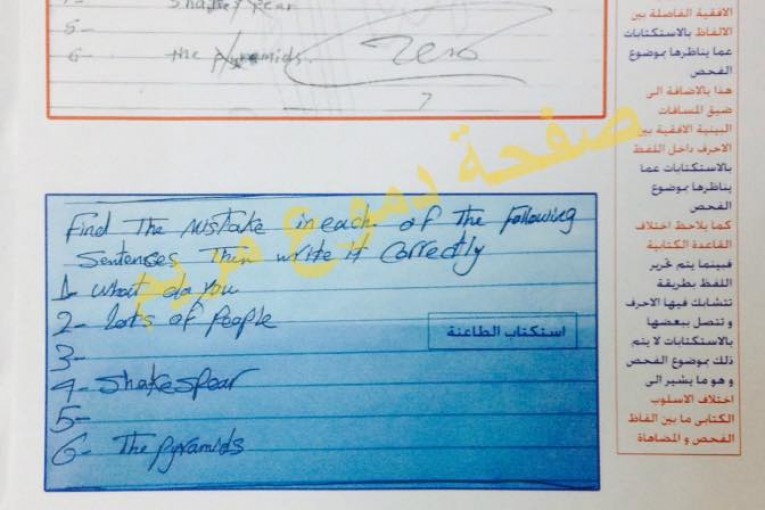 Shakes pear
5-
6- the pyramids
Zero
7
Find The Mistake in each of The Following
Sentenses Then write it Correctly
1- what do you
2- lots of people
3-
4- Shakespear
5-
6- The pyramids
استكتاب الطاعنة
صفحة دموع مريم
الافقية الفاصلة بين
الالفاظ بالاستكتابات
عما يناظرها بموضوع
الفحص
هذا بالاضافة الى
ضيق المسافات
البينية الافقية بين
الاحرف داخل اللفظ
بالاستكتابات عما
يناظرها بموضوع
الفحص
كما يلاحظ اختلاف
القاعدة الكتابية
فبينما يتم تحرير
اللفظ بطريقة
تتشابك فيها الاحرف
و تتصل ببعضها
بالاستكتابات لا يتم
ذلك بموضوع الفحص
و هو ما يشير الى
اختلاف الاسلوب
الكتابى ما بين الفاظ
الفحص و المضاهاة